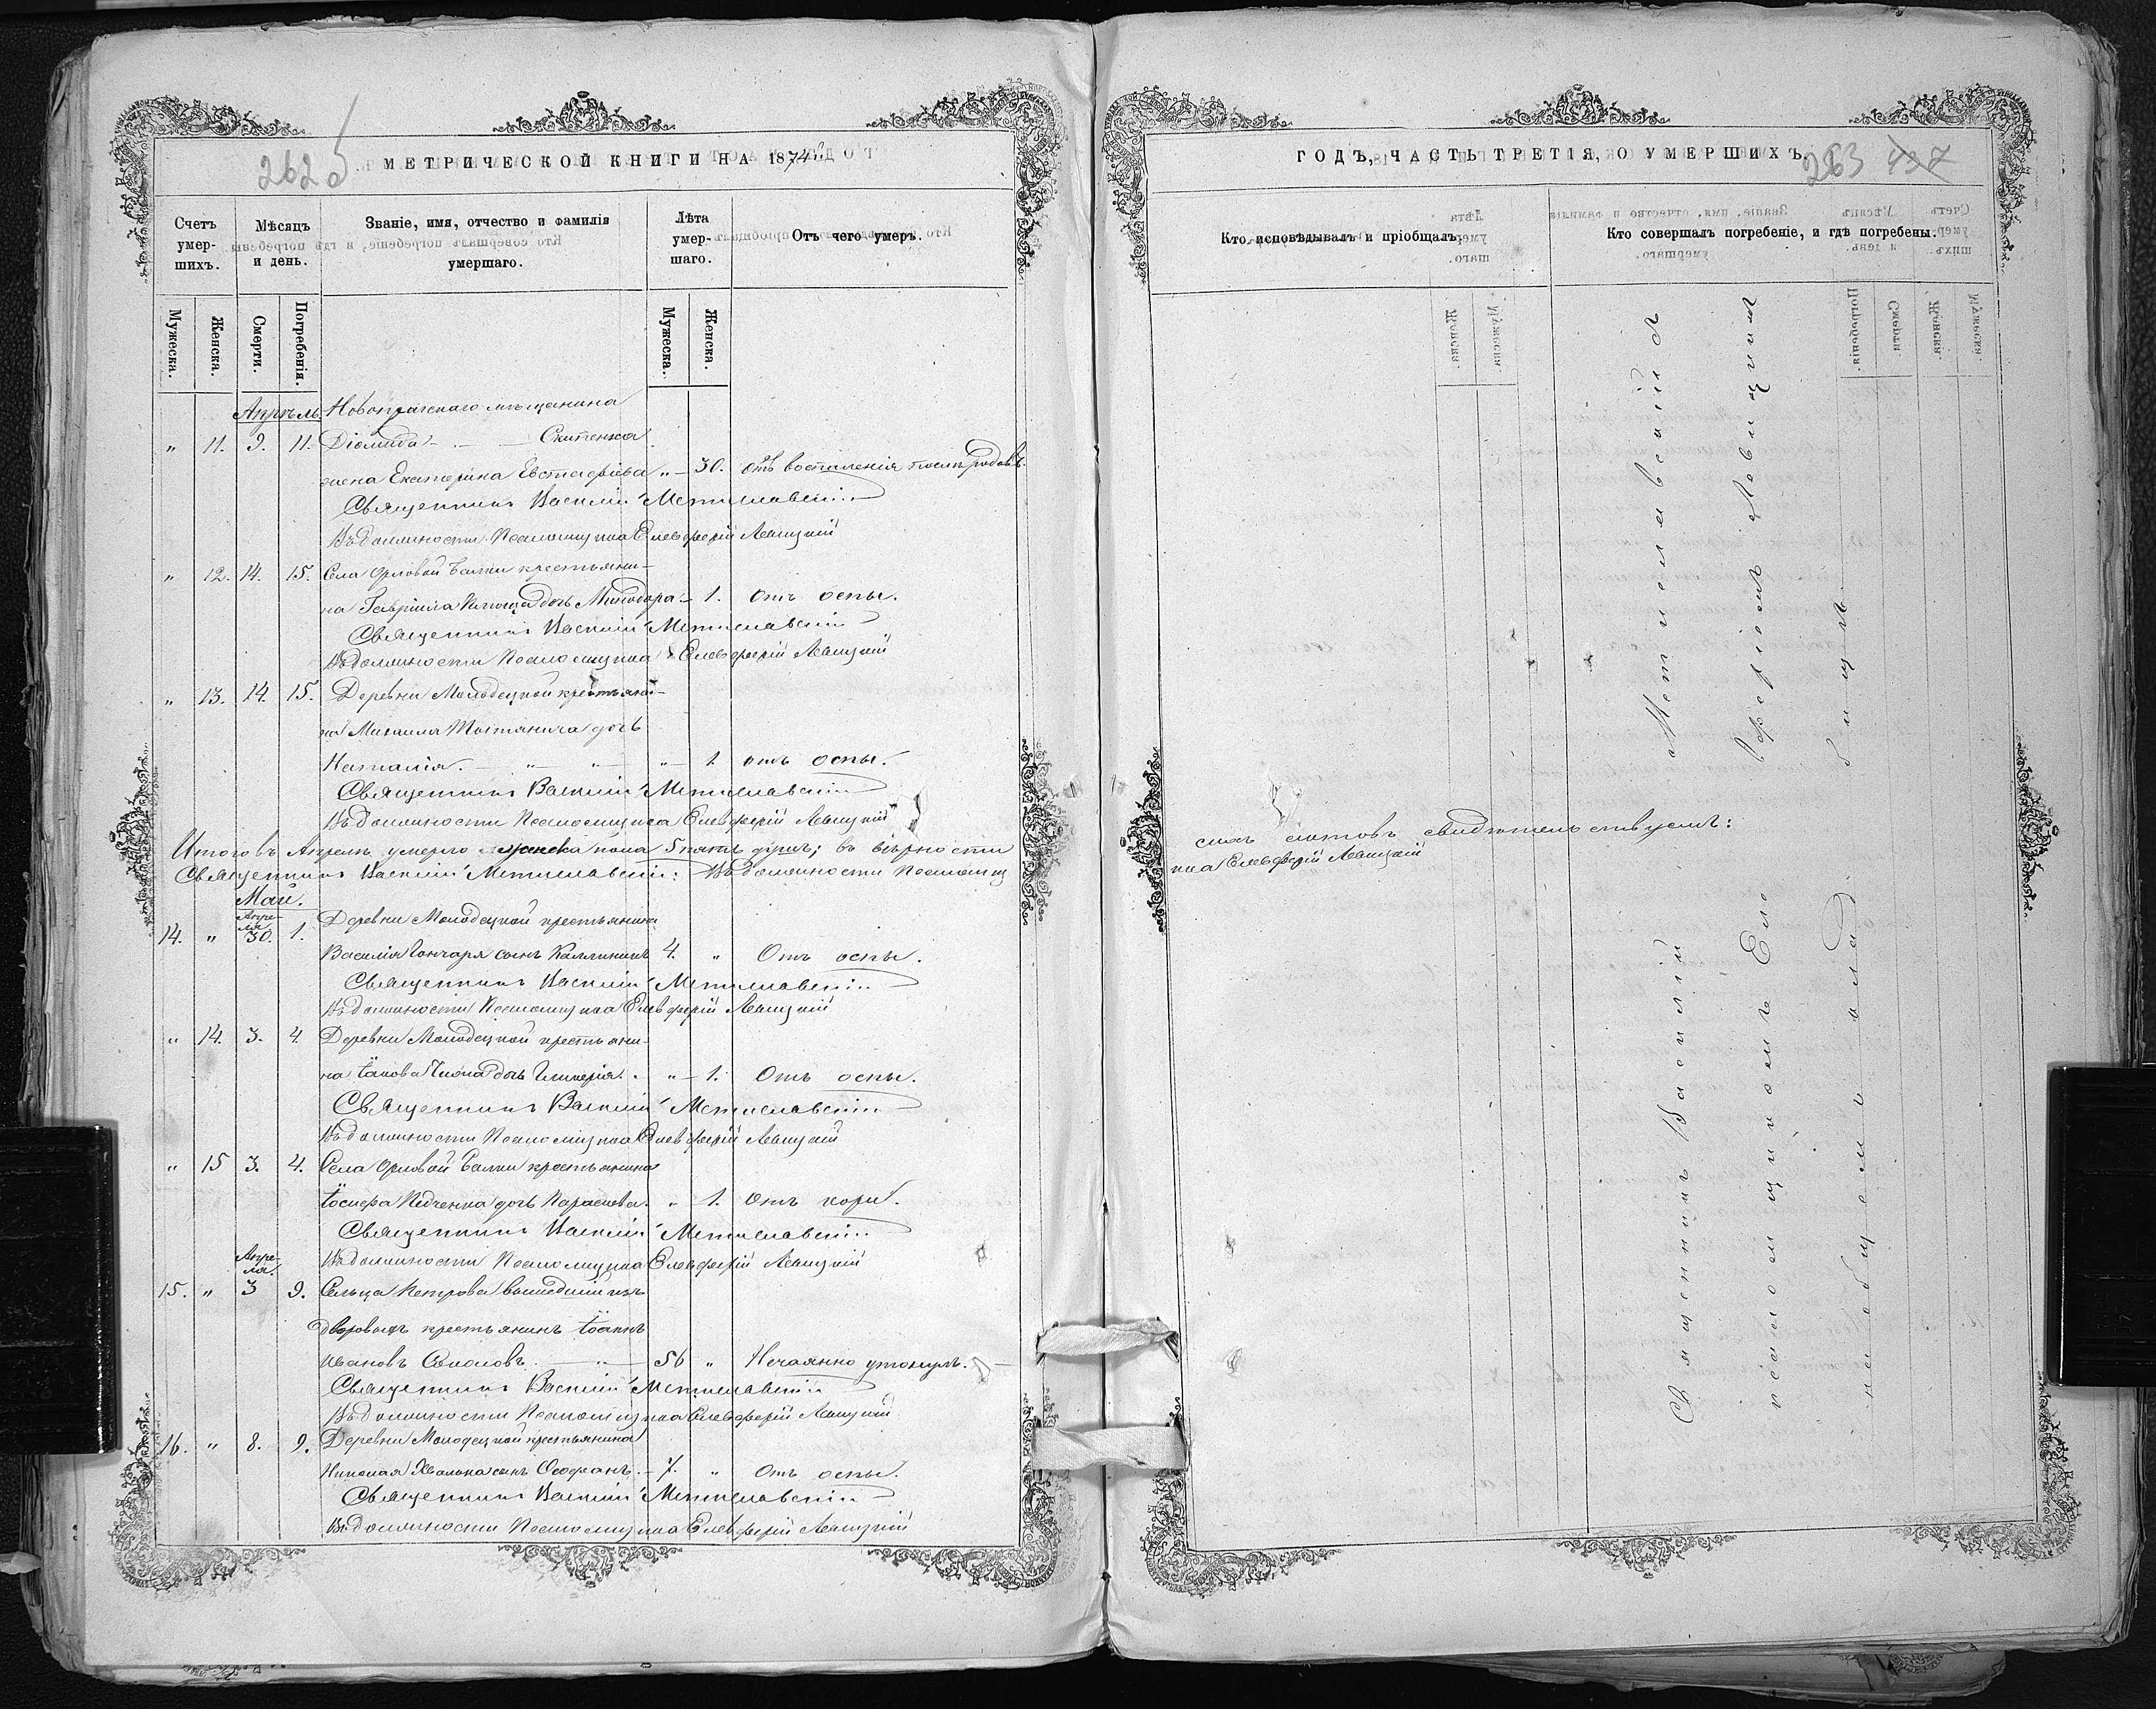 262 об
МЕТРИЧЕСКОЙ КНИГИ НА 1874й
Счетъ умер-шихъ.
Мѣсяцъ и день.
Званіе, имя, отчество и фамилія умершаго.
Лѣта умер-шаго.
Отъ чего умеръ.
Мужеска. Женска. Смерти. Погребенія. Мужеска. Женска.
Апрѣль. мѣщанина
" 11. 9. 11. Діомида
жена Екатерина Евстафіева " 30. отъ воспаленія послѣ родовъ.
Священникъ Василій Мстиславскій
Въ должности Псаломщика Елевферій Левицкій
" 12. 14. 15. Села Орловой Балки крестьяни-
на Гавріила дочь Минодора 1. Отъ оспы.
Священникъ Василій Мстиславскій
Въ должности Псаломщика Елевферій Левицкій
" 13. 14. 15. Деревни Молодецкой крестьяни-
на Михаила дочь
Наталія. " " " 1. отъ оспы.
Священникъ Василій Мстиславскій
Въ должности Псаломщика Елевферій Левицкій
Итого въ Апрелѣ умерло женска пола 5 пять душъ; въ вѣрности
Священникъ Василій Мстиславскій: Въ должности Псаломщ
Май.
Апре-
ля
14. " 30. 1. Деревни Молодецкой крестьянина
Василія Гончаря сынъ Каллиникъ 4. " Отъ оспы.
Священникъ Василій Мстиславскій
Въ должности Псаломщика Елевферій Левицкій
" 14. 3. 4 Деревни Молодецкой крестьяни-
на Іакова дочь Гликерія. " 1. Отъ оспы.
Священникъ Василій Мстиславскій
Въ должности Псаломщика Елевферій Левицкій
" 15 3. 4. Села Орловой Балки крестьянина
Іосифа дочь Параскева. " 1. Отъ кори.
Священникъ Василій Мстиславскій
Въ должности Псаломщика Елевферій Левицкій
Апре-
ля.
15. " 3 9. Сельца Петрова вышедшій изъ
дворовыхъ крестьянинъ Іоаннъ
Ивановъ Соколовъ " 56 " Нечаянно утонулъ.
Священникъ Василій Мстиславскій
Въ должности Псаломщика Елевферій Левицкій
16. " 8. 9. Деревни Молодецкой крестьянина
Николая сынъ Ѳеофанъ. " Отъ оспы.
Священникъ Василій Мстиславскій
Въ должности Псаломщика Елевферій Левицкій
263 437
ГОДЪ, ЧАСТЬ ТРЕТІЯ, О УМЕРШИХЪ.
Кто исповѣдывалъ и пріобщалъ.
Кто совершалъ погребеніе, и гдѣ погребены.
сихъ свидѣтельствуемъ:
ика Елевферій Левицкій
Священникъ Василій Мстиславскій съ
псаломщикомъ Елевферіемъ Левицкимъ
на общемъ кладбищѣ.